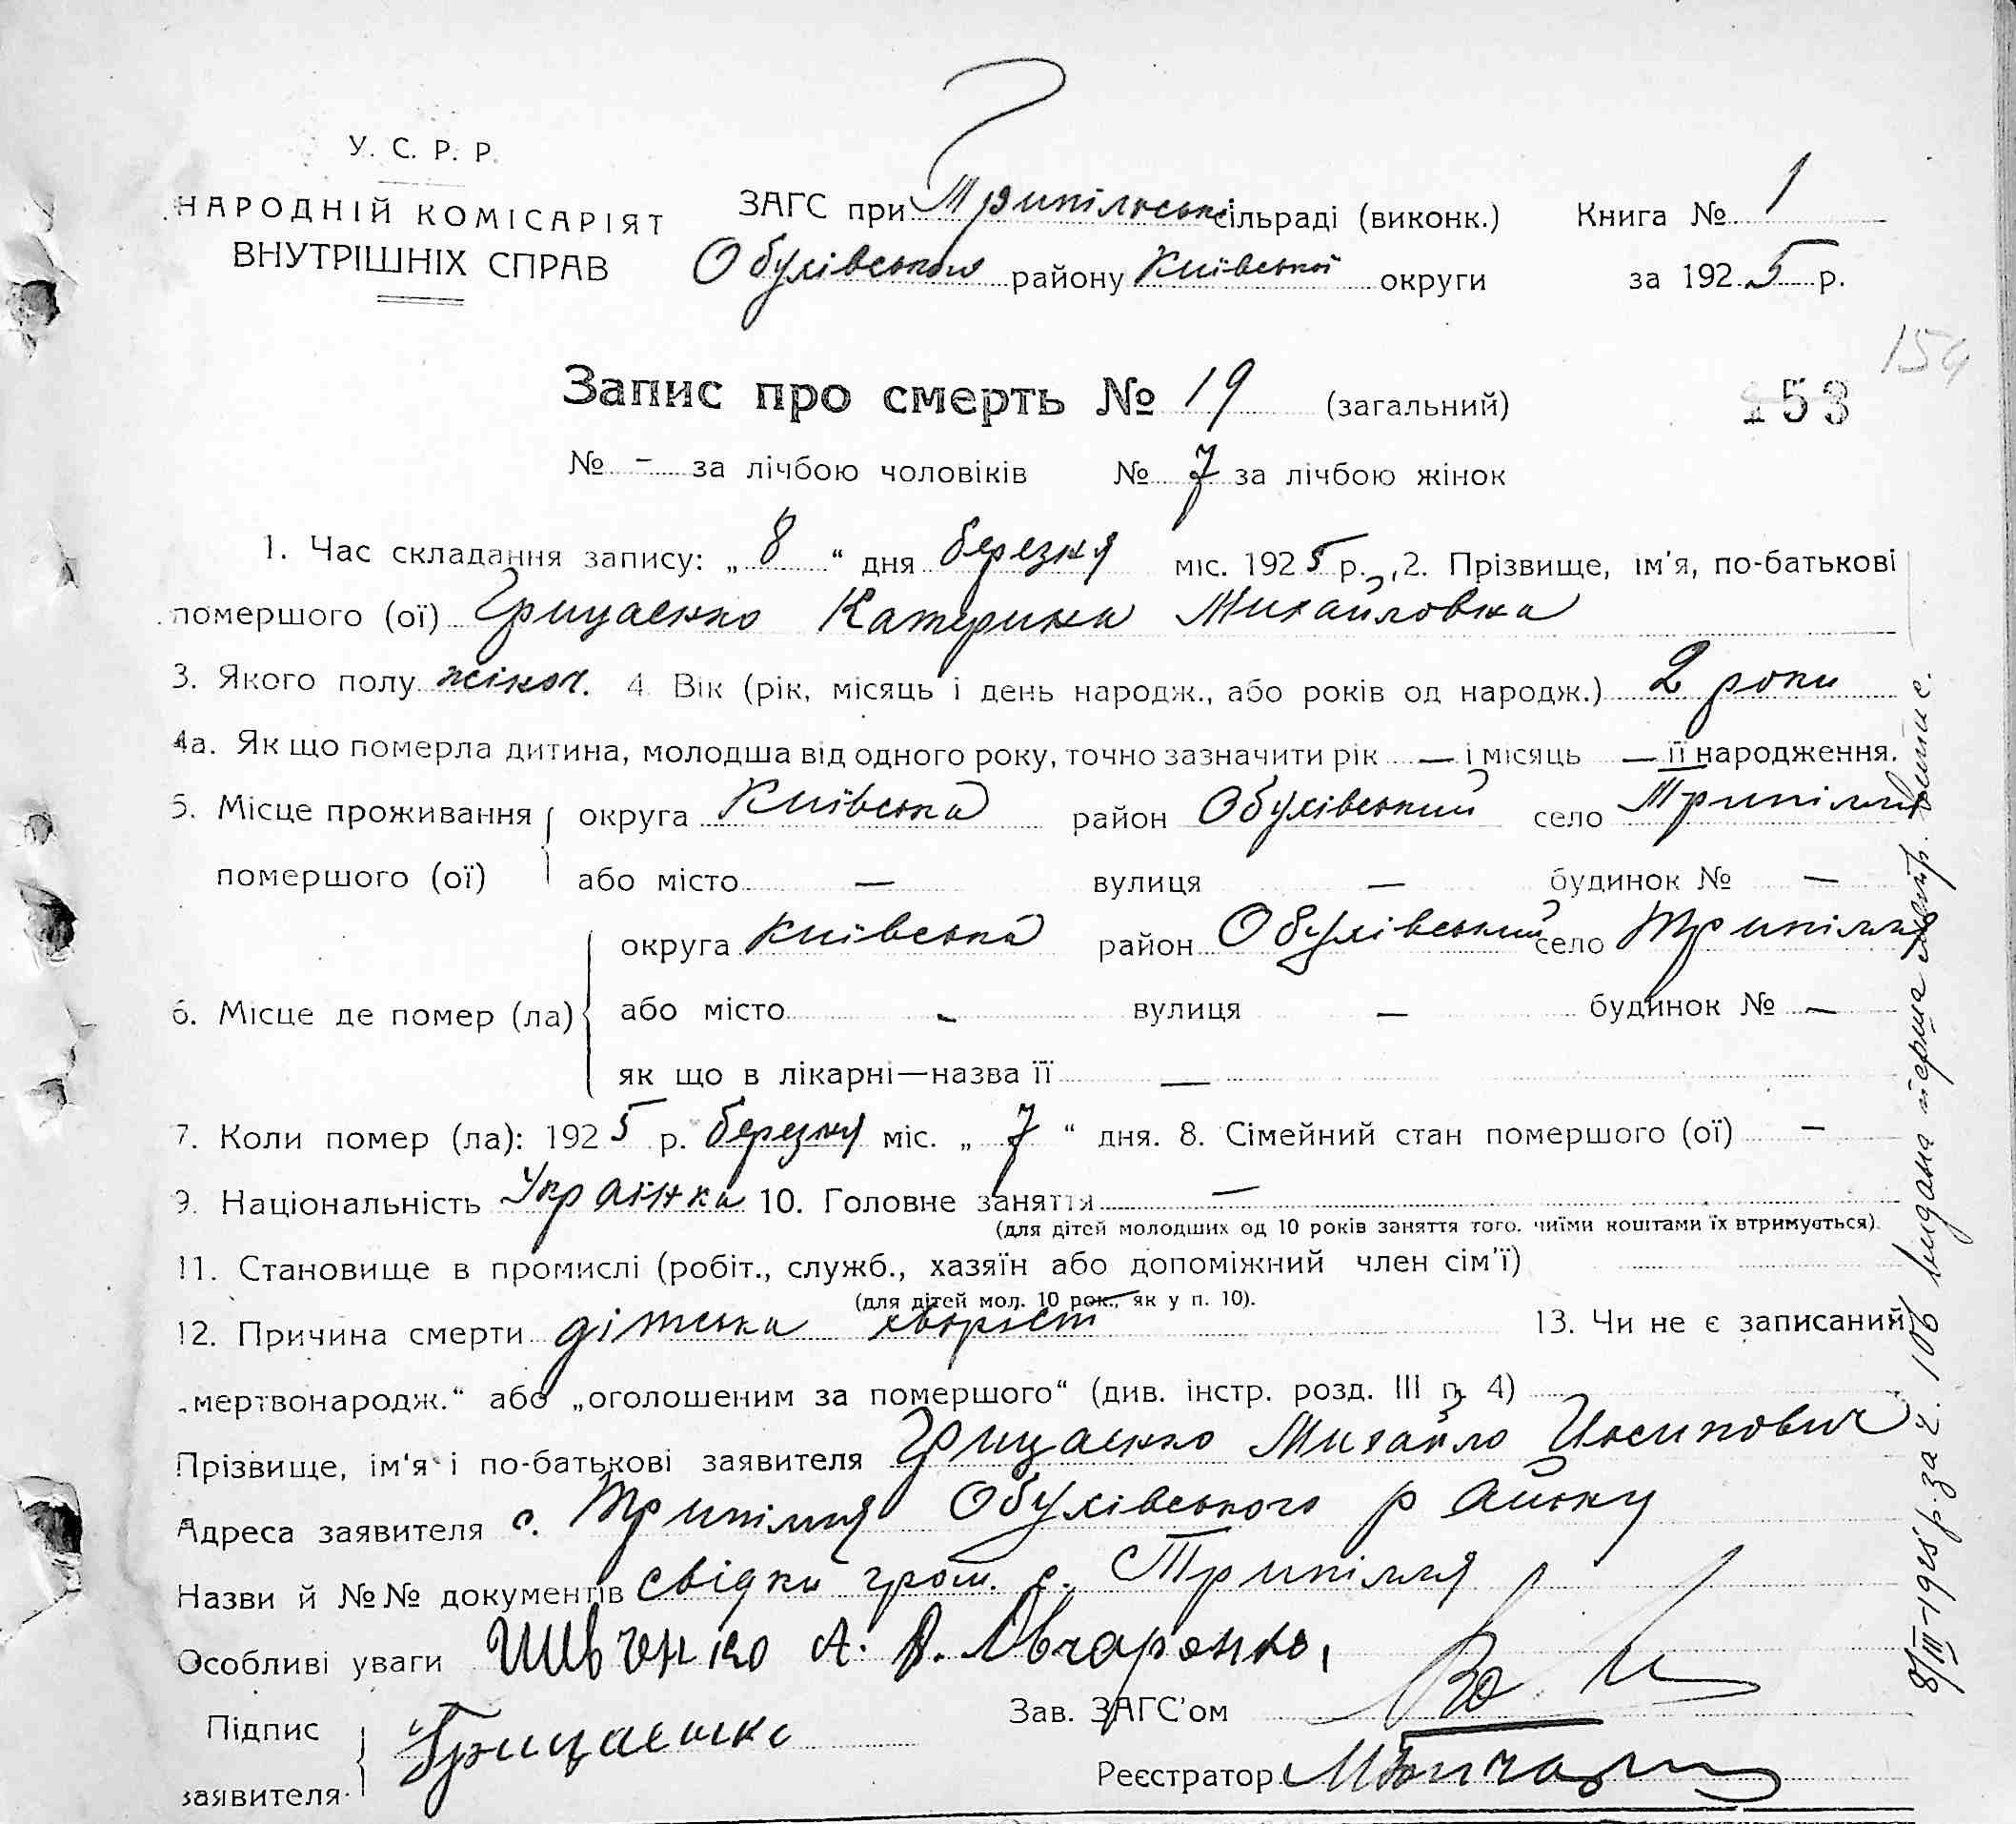 У. С. Р. Р.
НАРОДНІЙ КОМІСАРІЯТ
ВНУТРІШНІХ СПРАВ
ЗАГС при Трипільськ. сільраді (виконк.) Книга № 1
Обухівського району Київської округи за 1925 р.
154
Запис про смерть № 19 (загальний) 153
№ - за лічбою чоловіків № 7 за лічбою жінок
1. Час складання запису: „ 8 “ дня березня міс. 1925 р., 2. Прізвище, ім'я, по-батькові
помершого (ої) Грицаенко Катерина Михайловна
3. Якого полу жіноч. 4 Вік (рік, місяць і день народж., або років од народж.) 2 роки
4а. Як що померла дитина, молодша від одного року, точно зазначити рік — і місяць — її народження.
5. Місце проживання округа Київська район Обухівський село Трипілля
помершого (ої) або місто — вулиця — будинок № —
округа Київська район Обухівський село Трипілля
6. Місце де помер (ла) або місто - вулиця — будинок № —
як що в лікарні—назва її —
7. Коли помер (ла): 1925 р. березня міс. „ 7 “ дня. 8. Сімейний стан помершого (ої) —
9. Національність Українка 10. Головне заняття —
(для дітей молодших од 10 років заняття того. чиїми коштами їх втримується).
11. Становище в промислі (робіт., служб., хазяїн або допоміжний член сім'ї)
(для дітей мол. 10 рок., як у п. 10).
12. Причина смерти дітська хворість 13. Чи не є записаний
„мертвонародж.“ або „оголошеним за помершого“ (див. інстр. розд. III п. 4)
Прізвище, ім'я і по-батькові заявителя Грицаенко Михайло Иосипович
Адреса заявителя с. Трипілля Обухівського району
Назви й №№ документів свідки гром. с. Трипілля
Особливі уваги Шевченко А. В. Овчаренко,
Підпис Зав. ЗАГС'ом
заявителя Грицаенко Реєстратор
8/III-1925 р. за ч. 106 видана перша випис.